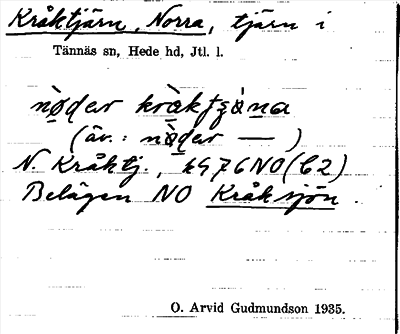 Kråktjärn, Norra, tjärn i
Tännäs sn, Hede hd, Jtl. l.
(äv.: — )
N. Kråktj., k976NO(C2)
Belägen NO Kråksjön.
O. Arvid Gudmundson 1935.